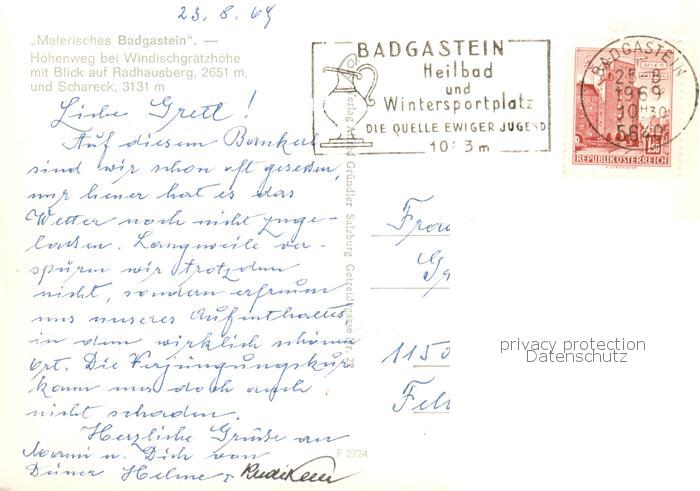 23. 8. 69
„Malerisches Badgastein". —
Höhenweg bei Windischgrätzhöhe
mit Blick auf Radhausberg, 2651 m,
und Schareck, 3131 m
Liebe Gretl!
Auf diesem Bankerl
sind wir schon oft gesessen,
nur heuer hat es das
Wetter noch nicht zuge-
lassen. Langweile ver-
spüren wir trotzdem
nicht, sondern erfreuen
uns unseres Aufenthaltes
in dem wirklich schönen
Ort. Die Verjüngungskur
kann uns doch auch
nicht schaden.
Herzliche Grüße an
Mami u. Dich von
Deiner Helme
F 2724
Verlag Gründler Salzburg Getreidegasse Nr. 23
BADGASTEIN
Heilbad
und
Wintersportplatz
DIE QUELLE EWIGER JUGEND
1083 m
BADGASTEIN
25-8
1969
10H30
5640
WIEN
REPUBLIK ÖSTERREICH
Frau
1150
privacy protection
Datenschutz